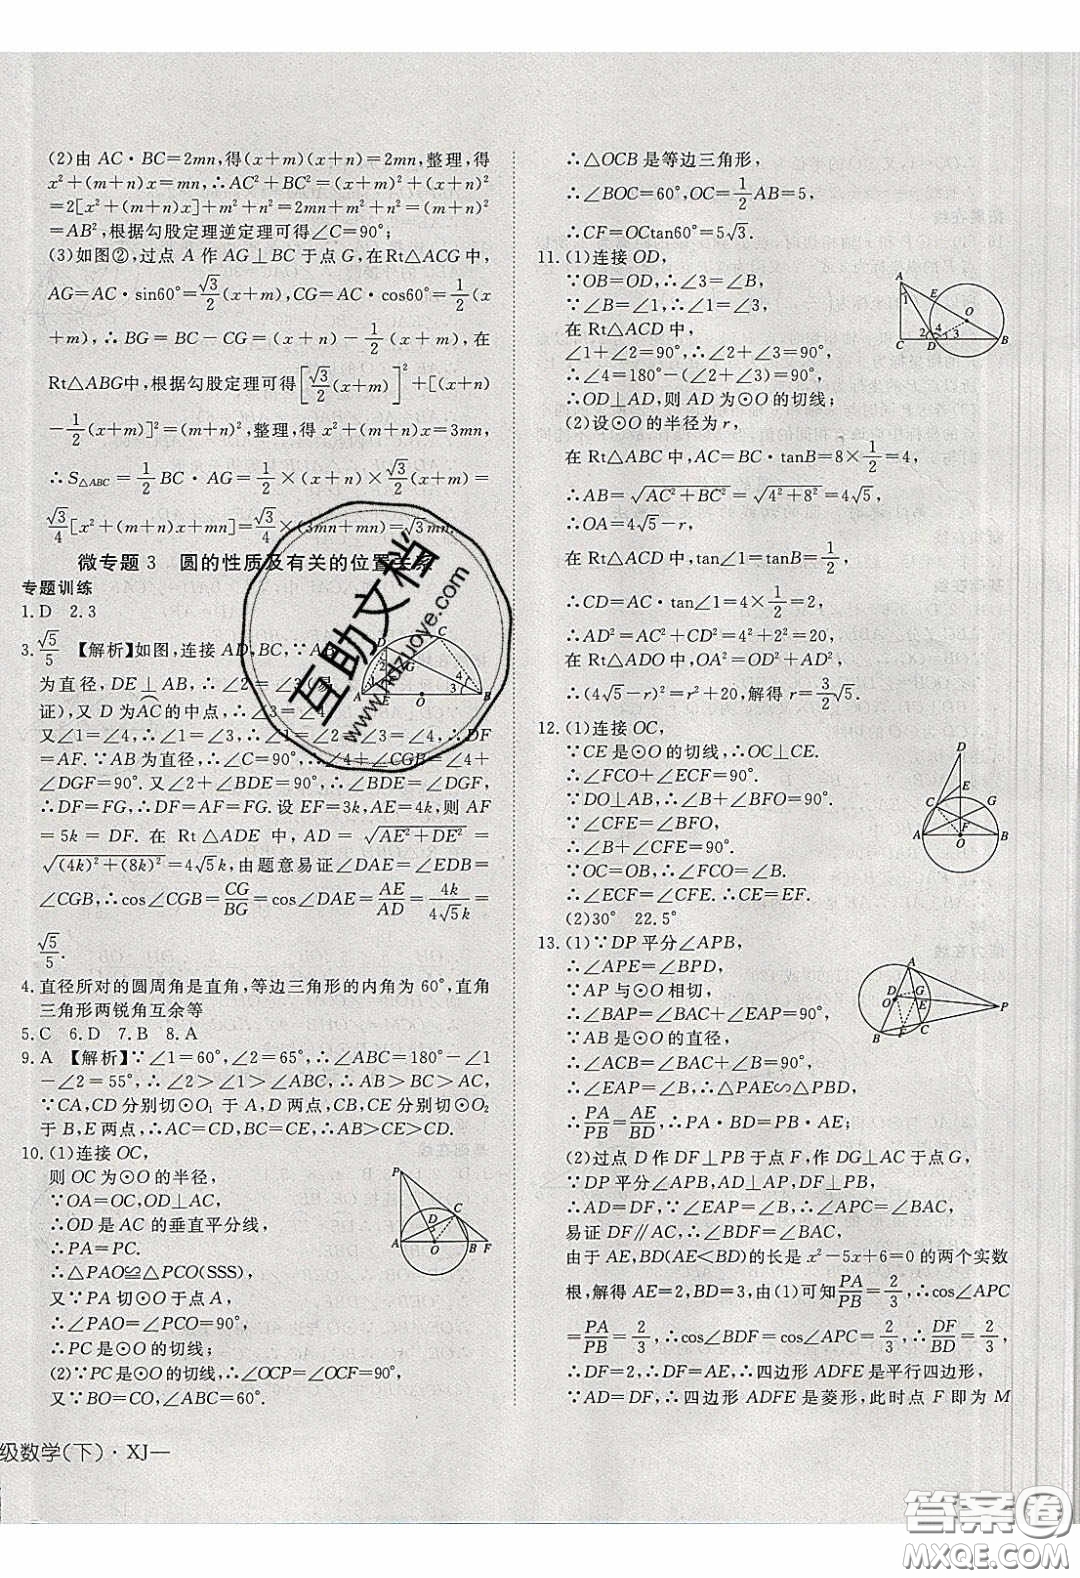 (2)由 AC·BC=2mn,得(x+m)(x+n)=2mn,整理,得
x²+(m+n)x=mn,∴AC²+BC²=(x+m)²+(x+n)²
=2[x²+(m+n)x]+m²+n²=2mn+m²+n²=(m+n)²=
AB²,根据勾股定理逆定理可得∠C=90°;
(3)如图②,过点 A 作 AG⊥BC 于点 G,在Rt△ACG 中,
AG=AC·sin60°=√3/2(x+m),CG=AC·cos60°=1/2(x+
m),∴BG=BC-CG=(x+n)-1/2(x+m),在
Rt△ABG中,根据勾股定理可得[√3/2(x+m)]²+[(x+n)
-1/2(x+m)]²=(m+n)²,整理,得x²+(m+n)x=3mn,
∴S△ABC=1/2BC·AG=1/2×(x+n)×√3/2(x+m)=
√3/4[x²+(m+n)x+mn]=√3/4×(3mn+mn)=√3mn.
微专题 3 圆的性质及有关的位置关系
专题训练
1. D 2. 3
3. √5/5 【解析】如图,连接 AD,BC,∵AB
为直径,DE⊥AB,∴∠2=∠3(易
证),又 D 为AC的中点,∴∠3=∠4,
又∠1=∠4,∴∠1=∠2=∠3=∠4,∴DF
=AF.∵AB为直径,∴∠C=90°,∴∠4+∠CGB=∠4+
∠DGF=90°.又∠2+∠BDE=90°,∴∠BDE=∠DGF,
∴DF=FG,∴DF=AF=FG.设 EF=3k,AE=4k,则 AF
=5k=DF.在 Rt△ADE 中,AD=√(AE²+DE²)=
√((4k)²+(8k)²)=4√5k,由题意易证∠DAE=∠EDB=
∠CGB,∴cos∠CGB=CG/BG=cos∠DAE=AE/AD=4k/(4√5k)=
√5/5.
4. 直径所对的圆周角是直角,等边三角形的内角为 60°,直角
三角形两锐角互余等
5. C 6. D 7. B 8. A
9. A 【解析】∵∠1=60°,∠2=65°,∴∠ABC=180°-∠1
-∠2=55°,∴∠2>∠1>∠ABC,∴AB>BC>AC,
∵CA,CD 分别切⊙O₁ 于 A,D两点,CB,CE 分别切⊙O₂
于 B,E 两点,∴AC=CD,BC=CE,∴AB>CE>CD.
10. (1)连接 OC,
则 OC 为⊙O 的半径,
∵OA=OC,OD⊥AC,
∴OD 是 AC 的垂直平分线,
∴PA=PC.
∴△PAO≌△PCO(SSS),
又∵PA 切⊙O 于点 A,
∴∠PAO=∠PCO=90°,
∴PC 是⊙O 的切线;
(2)∵PC是⊙O的切线,∴∠OCP=∠OCF=90°,
又∵BO=CO,∠ABC=60°.
∴△OCB 是等边三角形,
∴∠BOC=60°,OC=1/2AB=5,
∴CF=OCtan60°=5√3.
11. (1)连接 OD,
∵OB=OD,∴∠3=∠B,
∵∠B=∠1,∴∠1=∠3,
在 Rt△ACD 中,
∠1+∠2=90°,∴∠2+∠3=90°,
∴∠4=180°-(∠2+∠3)=90°,
∴OD⊥AD,则 AD 为⊙O 的切线;
(2)设⊙O 的半径为 r,
在 Rt△ABC 中,AC=BC·tanB=8×1/2=4,
∴AB=√(AC²+BC²)=√(4²+8²)=4√5,
∴OA=4√5-r,
在 Rt△ACD 中,tan∠1=tanB=1/2,
∴CD=AC·tan∠1=4×1/2=2,
∴AD²=AC²+CD²=4²+2²=20,
在 Rt△ADO 中,OA²=OD²+AD²,
∴(4√5-r)²=r²+20,解得 r=3/2√5.
12. (1)连接 OC,
∵CE 是⊙O 的切线,∴OC⊥CE.
∴∠FCO+∠ECF=90°.
∵DO⊥AB,∴∠B+∠BFO=90°.
∵∠CFE=∠BFO,
∴∠B+∠CFE=90°.
∵OC=OB,∴∠FCO=∠B.
∴∠ECF=∠CFE.∴CE=EF.
(2)30° 22.5°
13. (1)∵DP 平分∠APB,
∴∠APE=∠BPD,
∵AP 与⊙O 相切,
∴∠BAP=∠BAC+∠EAP=90°,
∵AB 是⊙O 的直径,
∴∠ACB=∠BAC+∠B=90°,
∴∠EAP=∠B,∴△PAE∽△PBD,
∴PA/PB=AE/BD,∴PA·BD=PB·AE;
(2)过点 D 作 DF⊥PB 于点 F,作 DG⊥AC 于点 G,
∵DP 平分∠APB,AD⊥AP,DF⊥PB,
∴AD=DF,∵∠EAP=∠B,∴∠APC=∠BAC,
易证 DF∥AC,∴∠BDF=∠BAC,
由于 AE,BD(AE<BD)的长是 x²-5x+6=0 的两个实数
根,解得 AE=2,BD=3,由(1)可知PA/PB=2/3,∴cos∠APC
=PA/PB=2/3,∴cos∠BDF=cos∠APC=2/3,∴DF/BD=2/3,
∴DF=2,∴DF=AE,∴四边形 ADFE 是平行四边形,
∵AD=DF,∴四边形 ADFE 是菱形,此时点 F 即为 M
级数学(下)·XJ—
互助文档
www.hdzuoye.com
答案圈
MXQE.COM